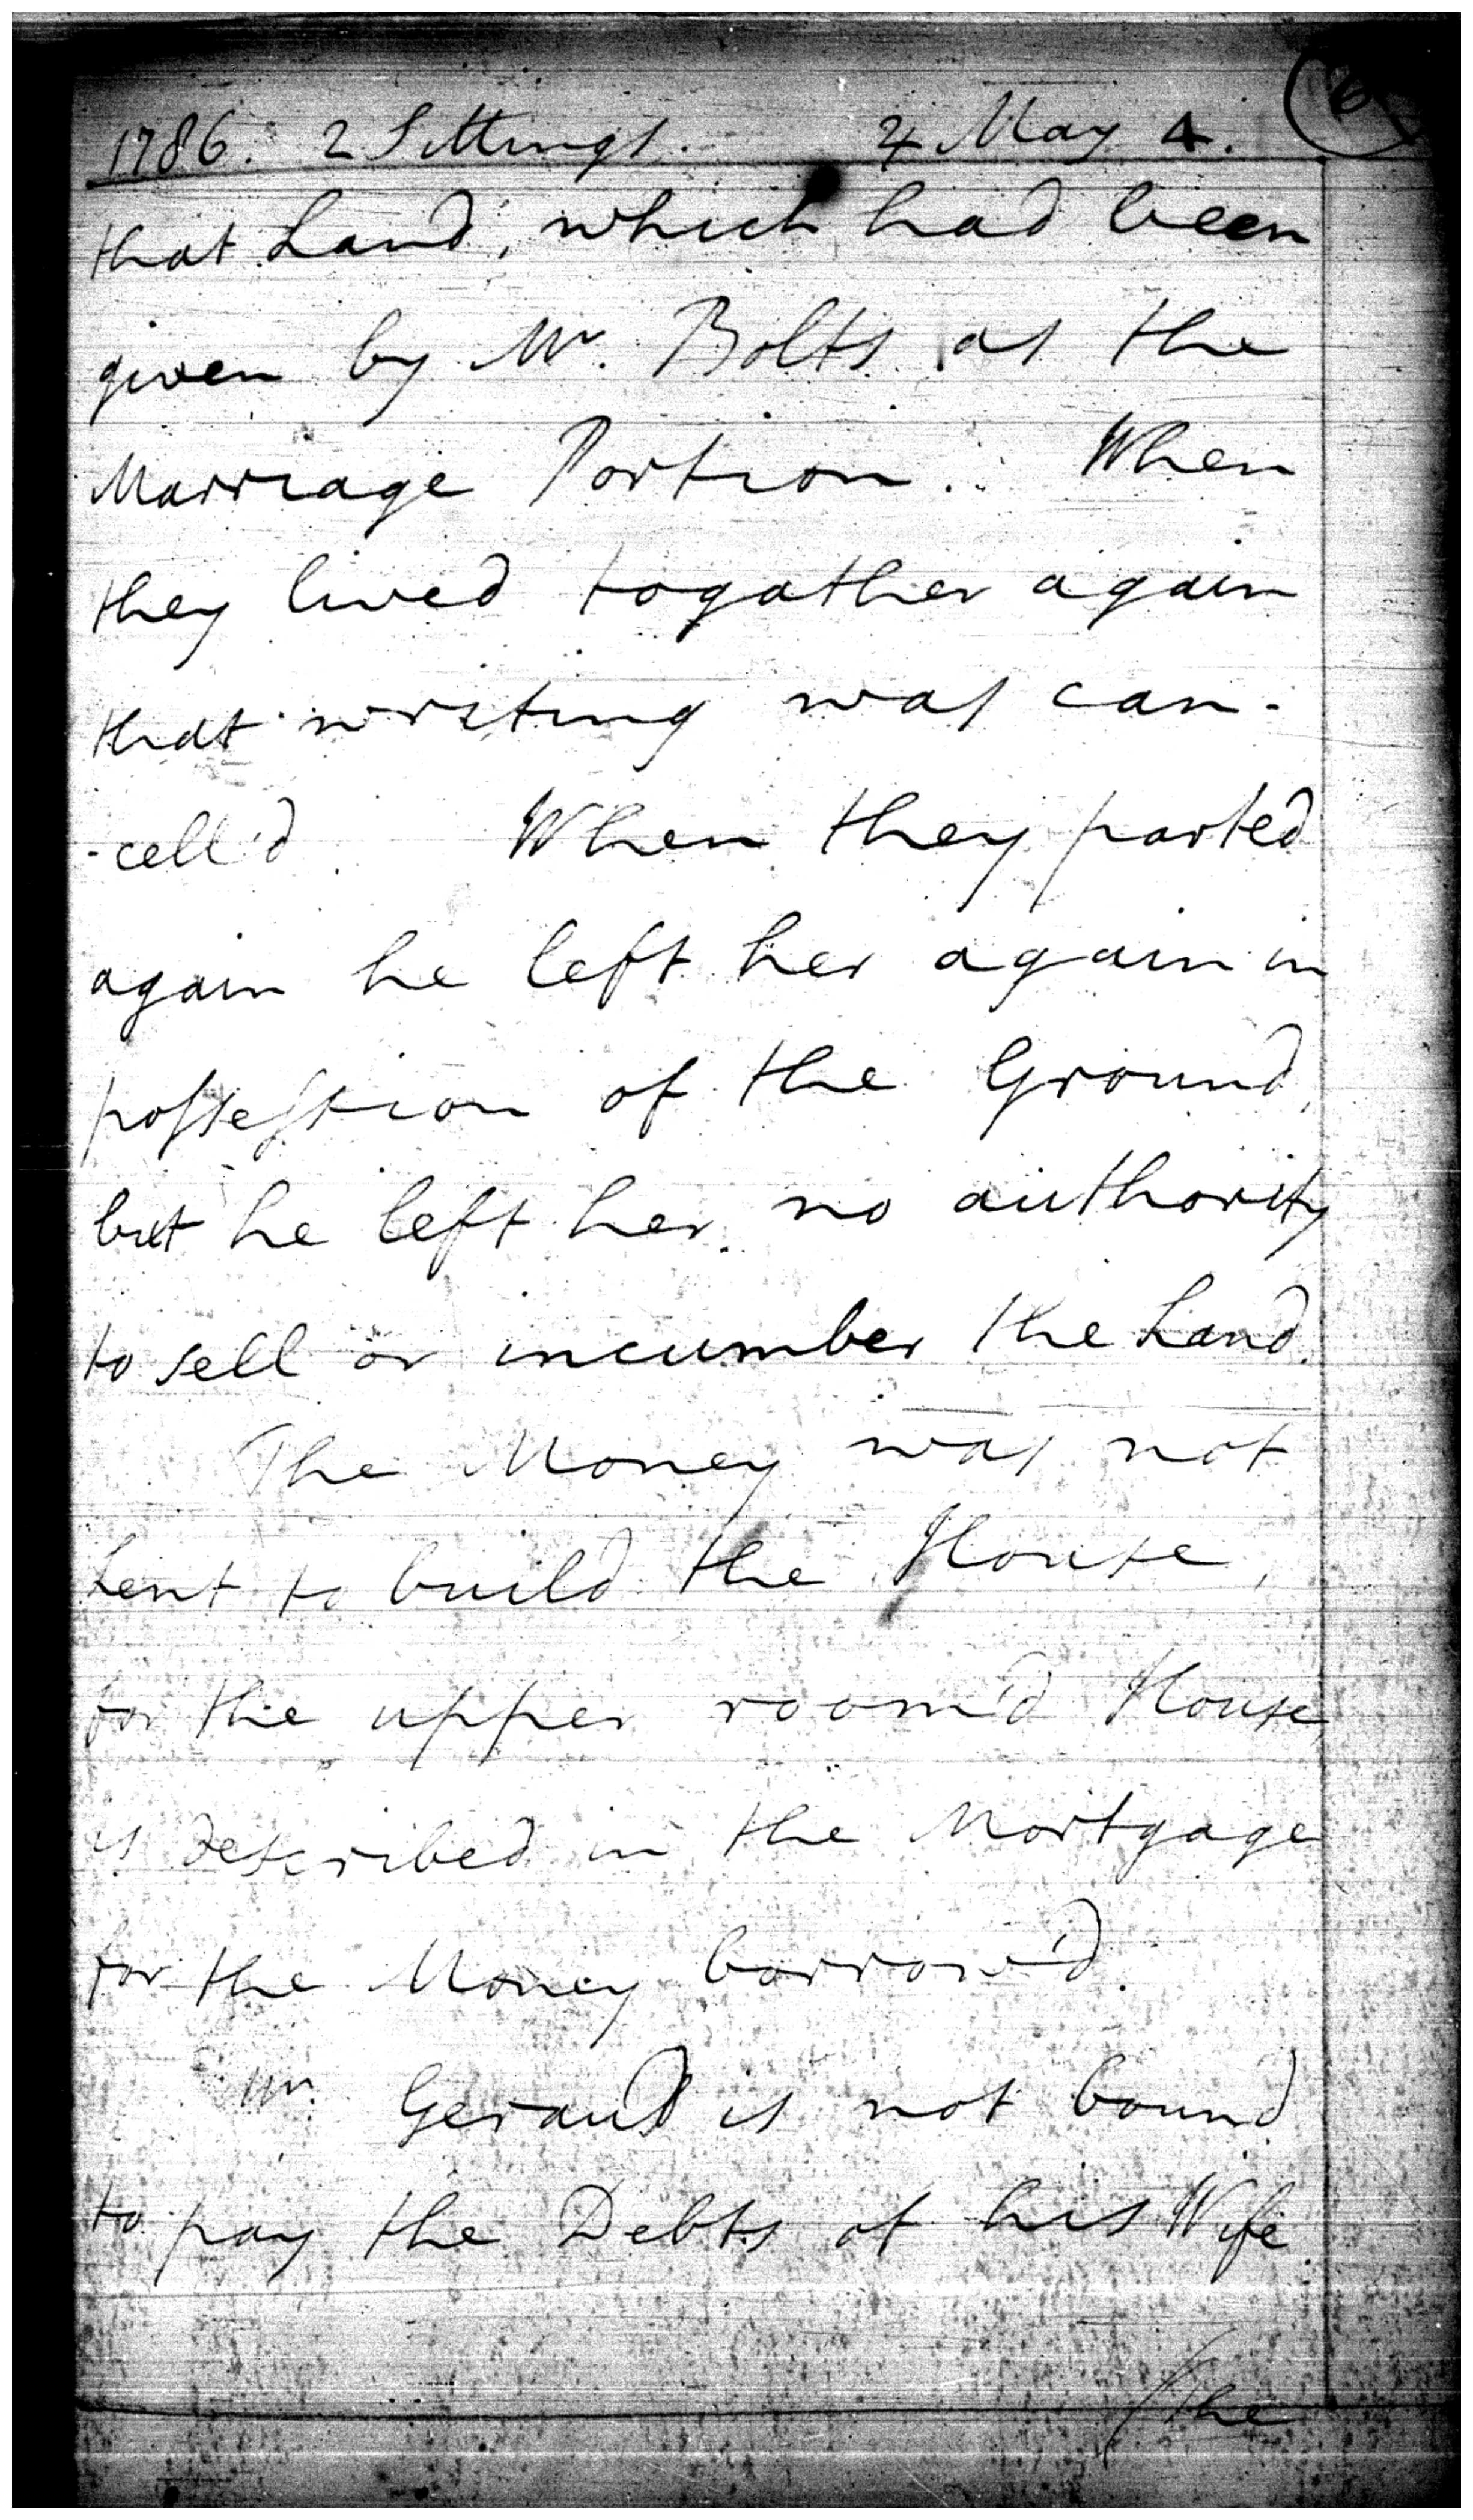 1786. 2 Sittings. ♃ May 4.
that Land, which had been
given by Mr. Bolts as the
Marriage Portion. When
they lived togather again
that writing was can-
-cell'd. When they parted
again he left her again in
possession of the Ground,
but he left her no authority
to sell or incumber the Land.
The Money was not
Lent to build the House,
for the upper room'd House
is described in the Mortgage
for the Money borrow'd.
Mr. Geraud is not bound
to pay the Debts of his Wife.
/The